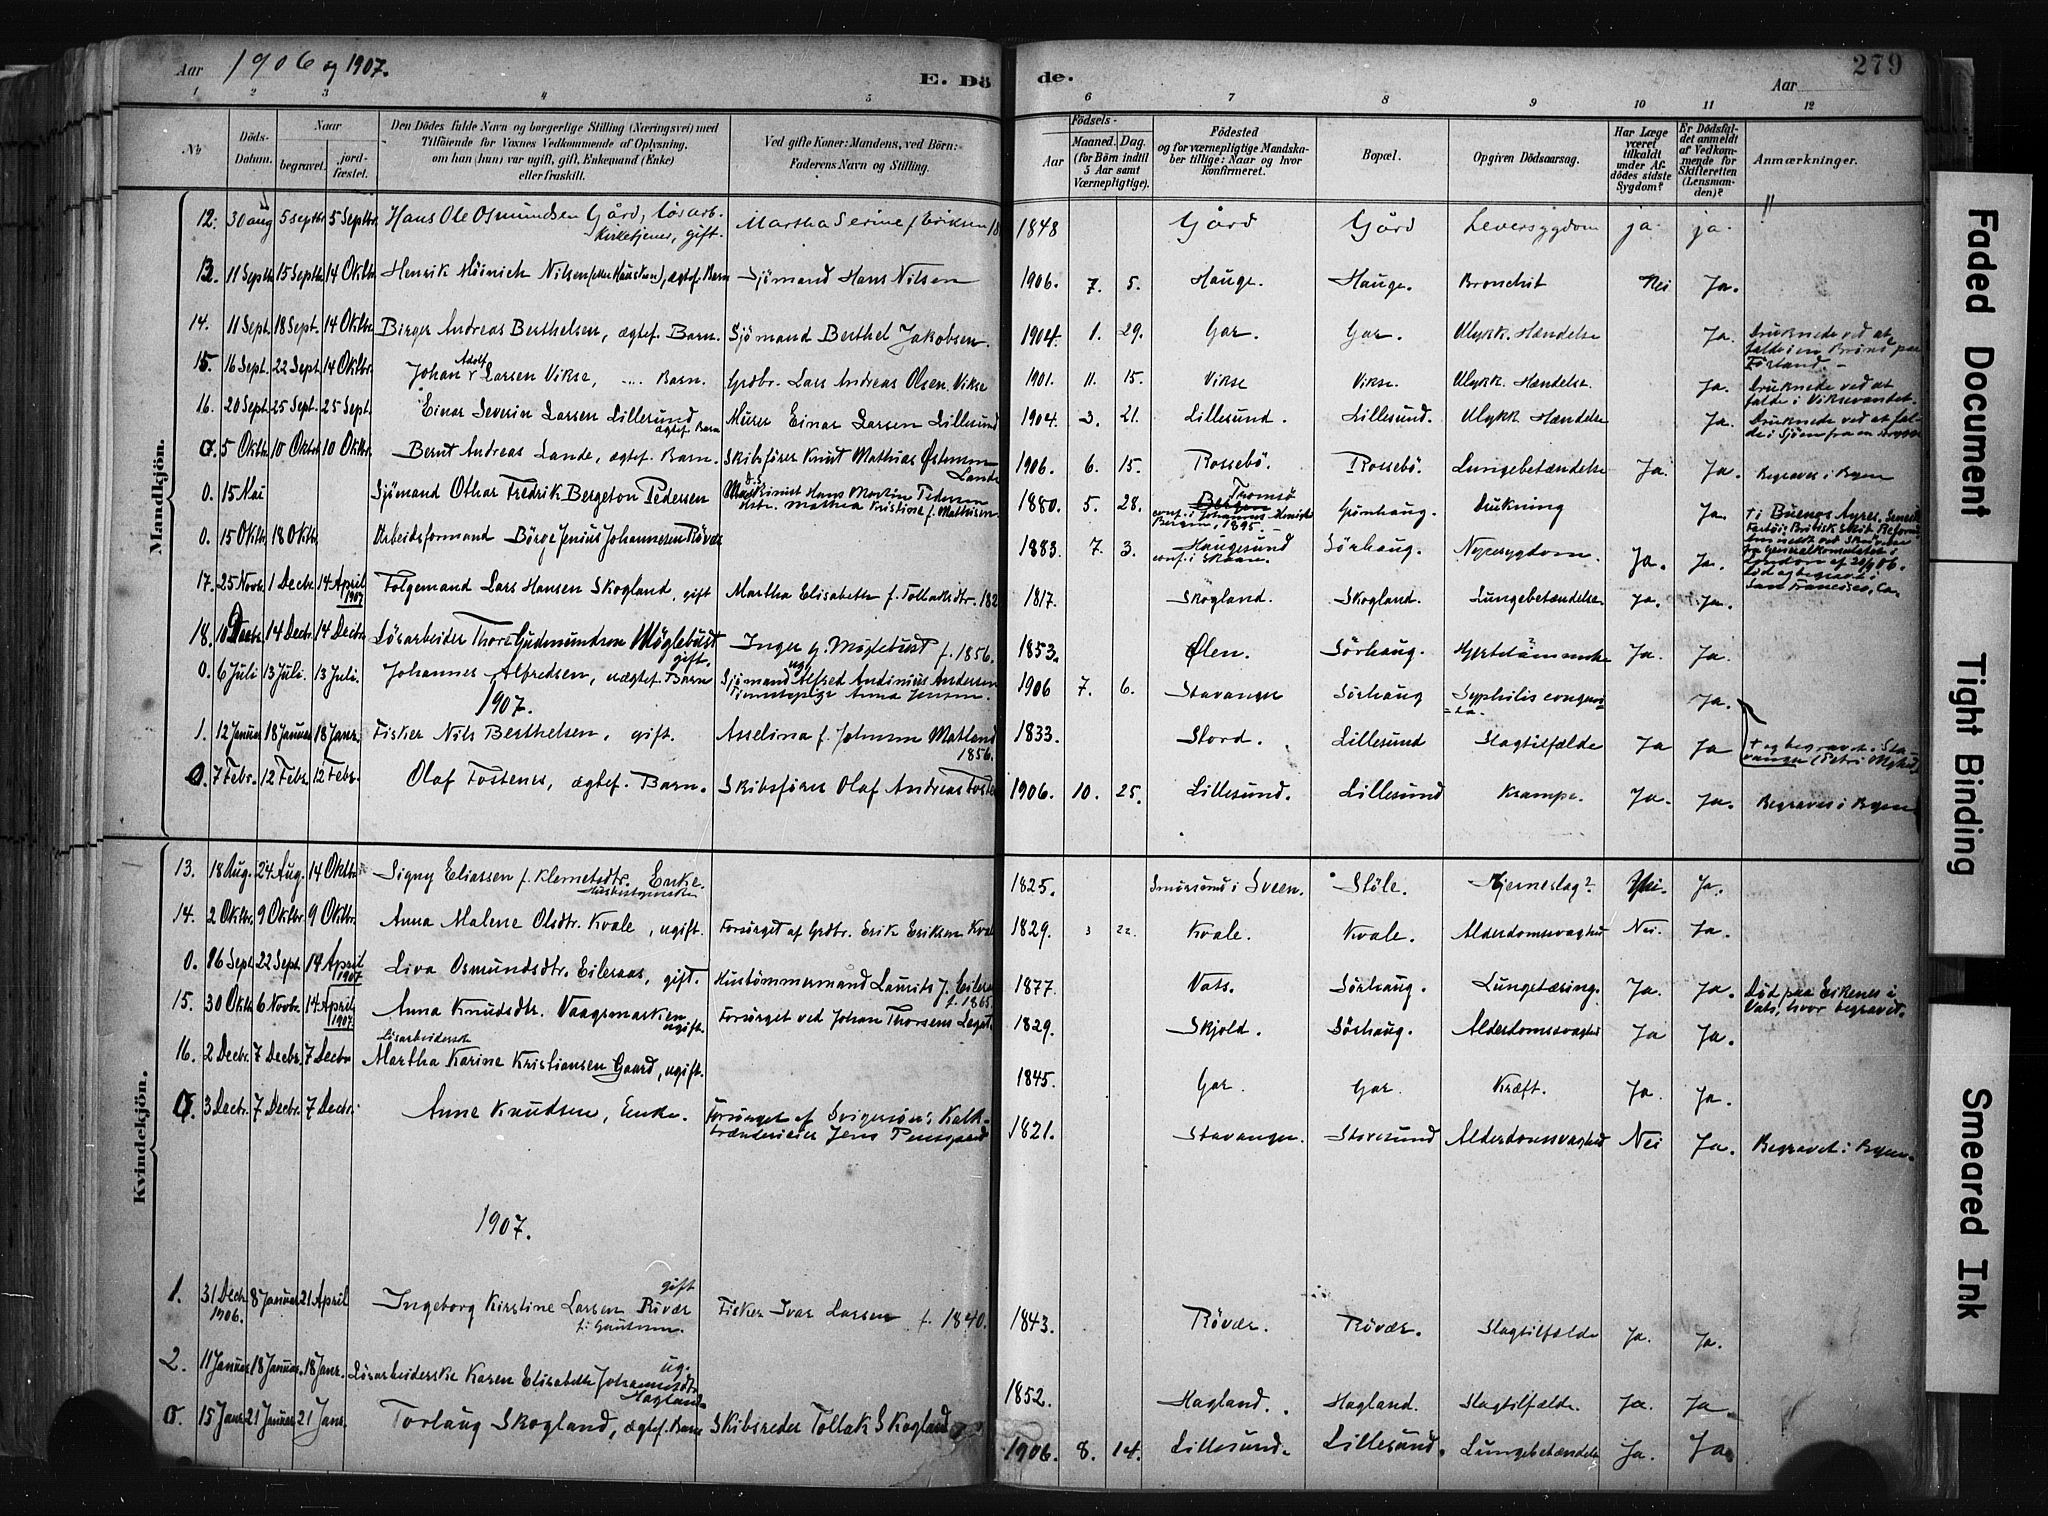 Aar 1906 og 1907.
E. Döde.
Aar
279
1 2 3 4 5 6 7 8 9 10 11 12
No
Döds-Datum.
Naar
begravet.
jordfæstet.
Den Dödes fulde Navn og borgerlige Stilling (Næringsvei) med
Tilföiende for Voxnes Vedkommende af Oplysning,
om han (hun) var ugift, gift, Enkemand (Enke)
eller fraskilt.
Ved gifte Koner: Mandens, ved Börn:
Faderens Navn og Stilling.
Födsels-
Aar
Maaned. Dag.
(for Börn indtil
5 Aar samt
Værnepligtige).
Födested
og for værnepligtige Mandskaber tillige: Naar og hvor
konfirmeret.
Bopæl.
Opgiven Dödsaarsag.
Har Læge
været
tilkaldt
under Afdödes sidste
Sygdom?
Er Dödsfaldet anmeldt
af Vedkommende for
Skifteretten
(Lensmanden)?
Anmærkninger.
Mandkjön.
12. 30 aug 5 septbr. 5 Septbr. Hans Ole Osmundsen Gård, løsarb. Kirketjener, gift. Martha Serine f. Eriksen 18 1848 Gård Gård Leversygdom ja. ja.
13. 11 Septbr 15 Septbr 14 Oktbr Henrik Höinich Nilsen, ægtef. Barn Sjömand Hans Nilsen 1906. 7. 5. Hauge. Hauge. Bronchit Nei Ja.
14. 11 Sept. 18 Sept. 14 Oktbr Birger Andreas Berthelsen, ægtef. Barn. Sjömand Berthel Jakobsen. 1904. 1. 29. Gar. Gar. Ulykk. Hændelse Ja. Druknede ved at falde i en Brönd paa Förland
15. 16 Sept. 22 Sept. 14 Oktbr. Johan Adolf Larsen Vikse, .... Barn. Grdbr. Lars Andreas Olsen Vikse 1901. 11. 15. Vikse Vikse. Ulykk. Hændelse. Ja. Druknede ved at falde i Viksevandet.
16. 20 Sept. 25 Sept. 25 Sept. Einar Severin Larsen Lillesund ægtef. Barn Murer Einar Larsen Lillesund 1904. 3. 21. Lillesund. Lillesund. Ulykk. Hændelse Ja. Druknede ved at falde i Sjöen fra en
0. 5 Oktbr. 10 Oktbr 10 Oktbr. Bernt Andreas Lande, ægtef. Barn. Skibsförer Knut Mathias Østensen Lande 1906. 6. 15. Rossebö. Rossebö. Lungebetændelse Ja. Ja. Begravet i Byen
0. 15 Mai Sjömand Othar Fredrik Bergeton Pedersen Maskinist Hans Martin Pedersen Hstr. Mathea Kristine f. Mathisen 1880. 5. 28. Bergen Tromsö conf. i Johannes Menigh. Bergen, 1895. Grönhaug. Drukning Ja. † i Buenos Ayres.
0. 15 Oktbr. 18 Oktbr. Arbeidsformand Börge Jenius Johannesen Rövær 1883. 7. 3. Haugesund conf. i Skaare. Sörhaug. Nyresygdom. Ja. Ja. Död og begravet i San Francisco, Ca.
17. 25 Novbr. 1 Decbr. 14 April 1907 Folgemand Lars Hansen Skogland, gift Martha Elisabeth f. Tollaksdtr. 182 1817. Skogland. Skogland. Lungebetændelse Ja. Ja.
18. 10 Decbr. 14 Decbr. 14 Decbr. Lösarbeider Thore Gudmundsen Möglebust gift. Inger g. Möglebust f. 1856. 1853. Ølen. Sörhaug. Hjertelammelse Ja. Ja.
0. 6 Juli 13 Juli. 13 Juli. Johannes Alfredsen, uægtef. Barn Sjömand ug. Alfred Andinius Andersen Tjenestepige Anna Jensen. 1906 7. 6. Stavanger Sörhaug Syphilis congenita. Ja. † og begravet i Stavanger (Petri Mghd)
1907.
1. 12 Januar 18 Januar 18 Janr. Fisker Nils Berthelsen, gift. Asselina f. Johnsen Matland 1856. 1833. Stord. Lillesund Slagtilfælde Ja Ja
0. 7 Febr. 12 Febr. 12 Febr. Olaf Tostenes, ægtef. Barn. Skibsförer Olaf Andreas Toste 1906. 10. 25. Lillesund. Lillesund Krampe. Ja. Ja. Begravet i Byen
Kvindekjön.
13. 18 Aug. 24 Aug. 14 Oktbr. Signy Eliassen f. Klemetsdtr. Enke. 1825. Smörsund i Sveen. Stöle. Hjerneslag? Nei Ja.
14. 2 Oktbr. 9 Oktbr. 9 Oktbr. Anna Malene Olsdtr. Kvale, ugift. Forsörget af Grdbr. Erik Eriksen Kval 1829. 3 22. Kvale. Kvale. Alderdomssvaghed Nei. Ja.
0. 16 Sept. 22 Sept. 14 April 1907 Liva Osmundsdtr. Eileraas, gift. Hustömmermand Laurits J. Eilera f. 1865. 1877. Vats. Sörhaug. Lungetæring. Ja. Ja. Död paa Eikenes i Vats, hvor begravet.
15. 30 Oktbr 6 Novbr. 14 April 1907. Anna Knudsdtr. Vaagsmarken ugift. Forsörget ved Johan Thorsens Legat. 1829. Skjold. Sörhaug. Alderdomssvaghed Ja Ja.
16. 2 Decbr. 7 Decbr. 7 Decbr Lösarbeiderske Martha Karine Kristiansen Gaard, ugift. 1845. Gar. Gar. Kræft. Ja. Ja.
0. 3 Decbr. 7 Decbr. 7 Decbr. Anne Knudsen, Enke. Forsörget af Svigersön: Kalkbrænderieier Jens 1821. Stavanger. Storesund Alderdomssvaghed Nei Ja. Begravet i Byen.
1907.
1. 31 Decbr. 1906. 8 Januar 21 April Ingeborg Kirstine Larsen Rövær gift Fisker Ivar Larsen f. 1840. 1843. Rövær. Rövær. Slagtilfælde Ja. Ja.
2. 11 Januar 18 Januar. 18 Janr. Lösarbeiderske Karen Elisabeth Johannesdtr. Hagland ug. 1852. Hagland. Hagland. Slagtilfælde. Ja. Ja
0. 15 Janr. 21 Januar 21 Janr. Torlaug Skogland, ægtef. Barn Skibsreder Tollak Skogland 1906. 8. 14. Lillesund. Lillesund. Lungebetændelse Ja. Ja.
Faded Document
Tight Binding
Smeared Ink